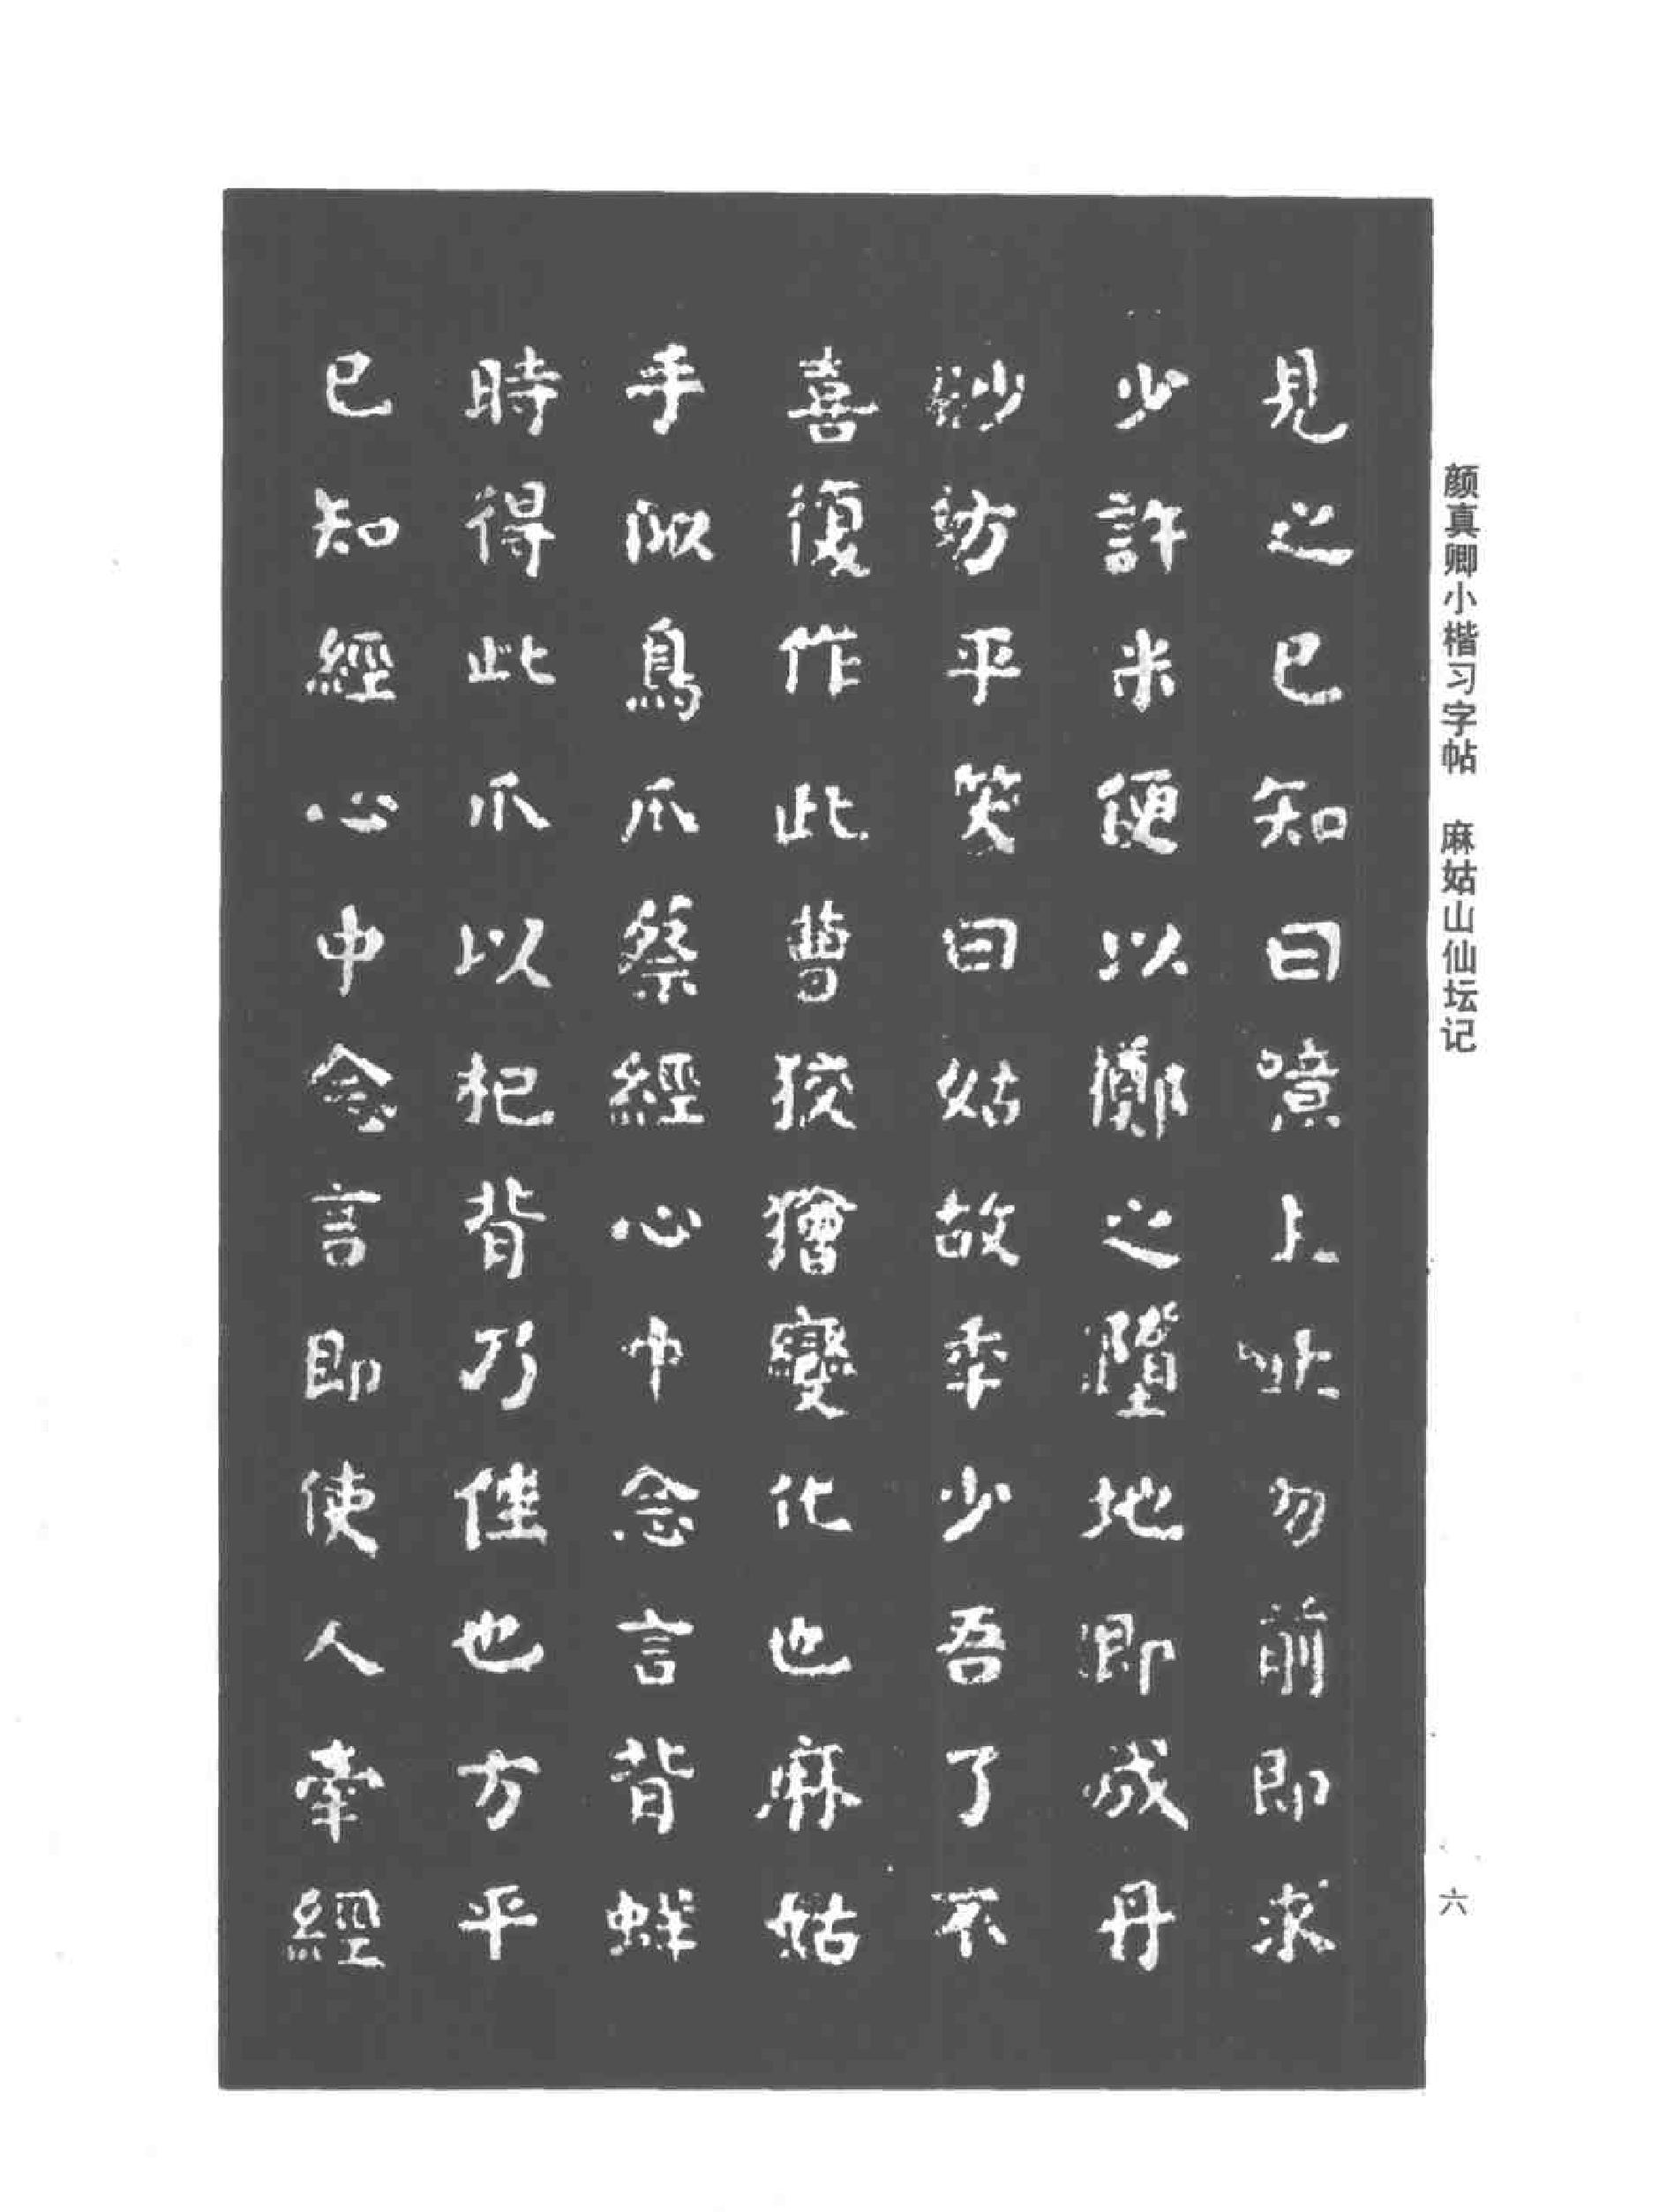 見之已知曰噫且止勿前即求
少許米便以擲之墮地即成丹
砂方平笑曰姑故年少吾了不
喜復作此曹狡獪變化也麻姑
手似鳥爪蔡經心中念言背蛘
時得此爪以杷背乃佳也方平
已知經心中念言即使人牽經
颜真卿小楷习字帖 麻姑山仙坛记
六